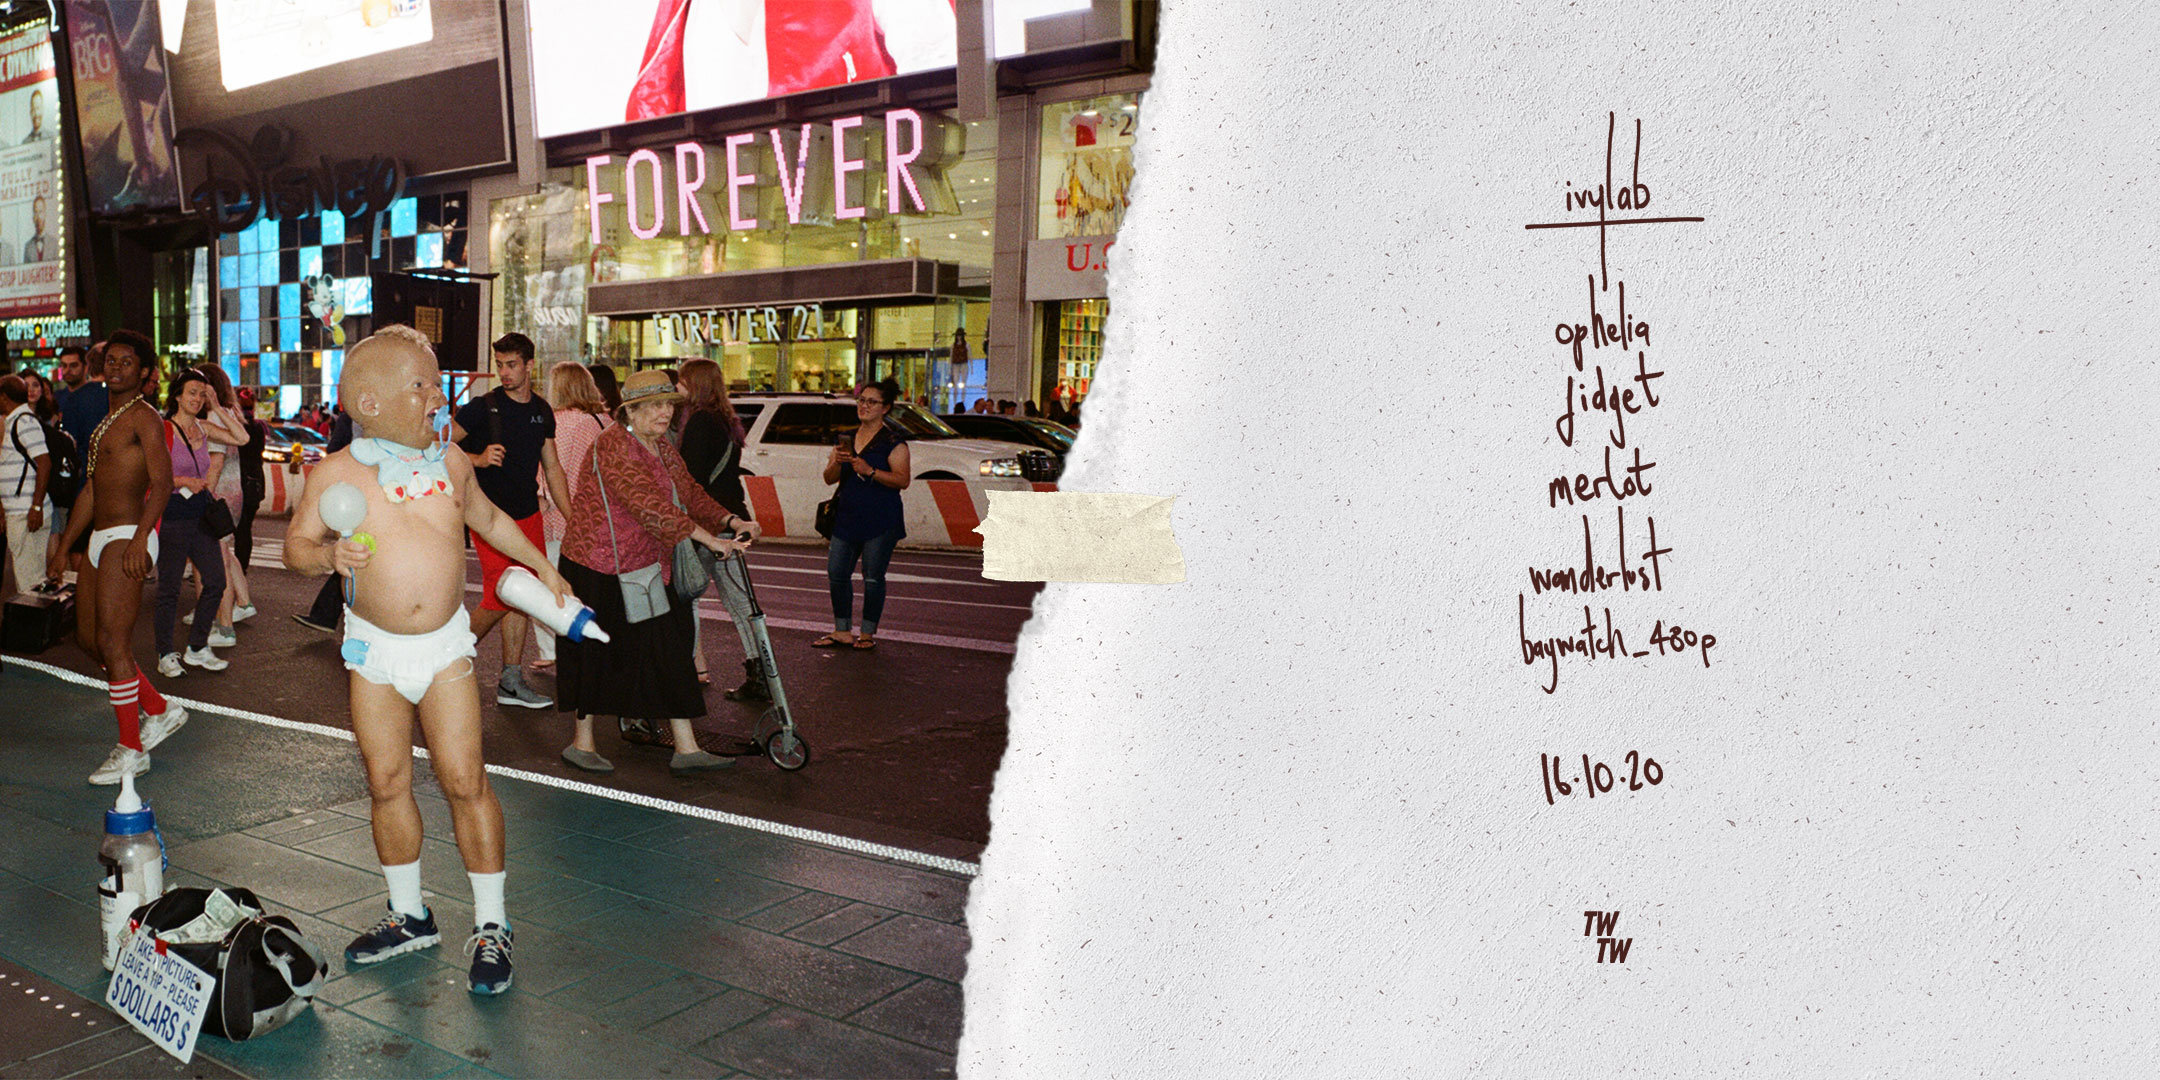 BFG
C DYNAMIC
FULLY
COMMITTED
STOP LAUGHTER!
GIFTS LUGGAGE
Disney
FOREVER
FOREVER 21
$2
U.S.
TAKE A PICTURE
LEAVE A TIP - PLEASE
$ DOLLARS $
ivylab
ophelia
fidget
merlot
wanderlust
baywatch_480p
16.10.20
TW
TW